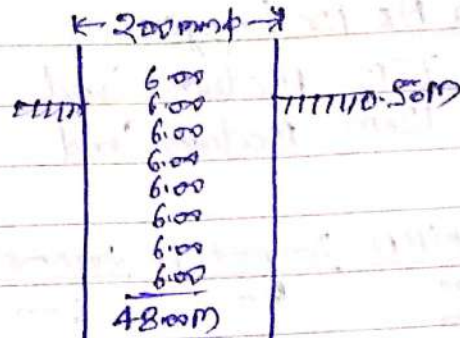 200mmϕ
6.00
6.00 0.50m
6.00
6.00
6.00
6.00
6.00
6.00
48.00m